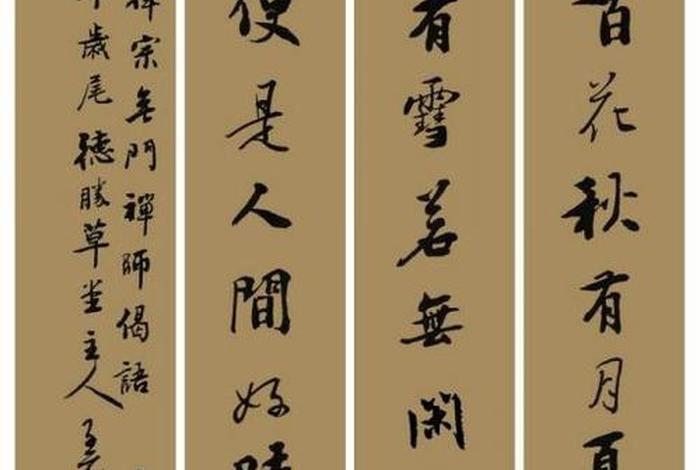 百花秋有月夏
有雪若無閑
便是人間好時
禪宗無門禪師偈語
歲尾德勝草堂主人